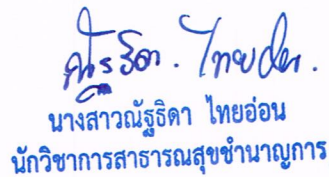 ณัฐธิดา . ไทยอ่อน.
นางสาวณัฐธิดา ไทยอ่อน
นักวิชาการสาธารณสุขชำนาญการ